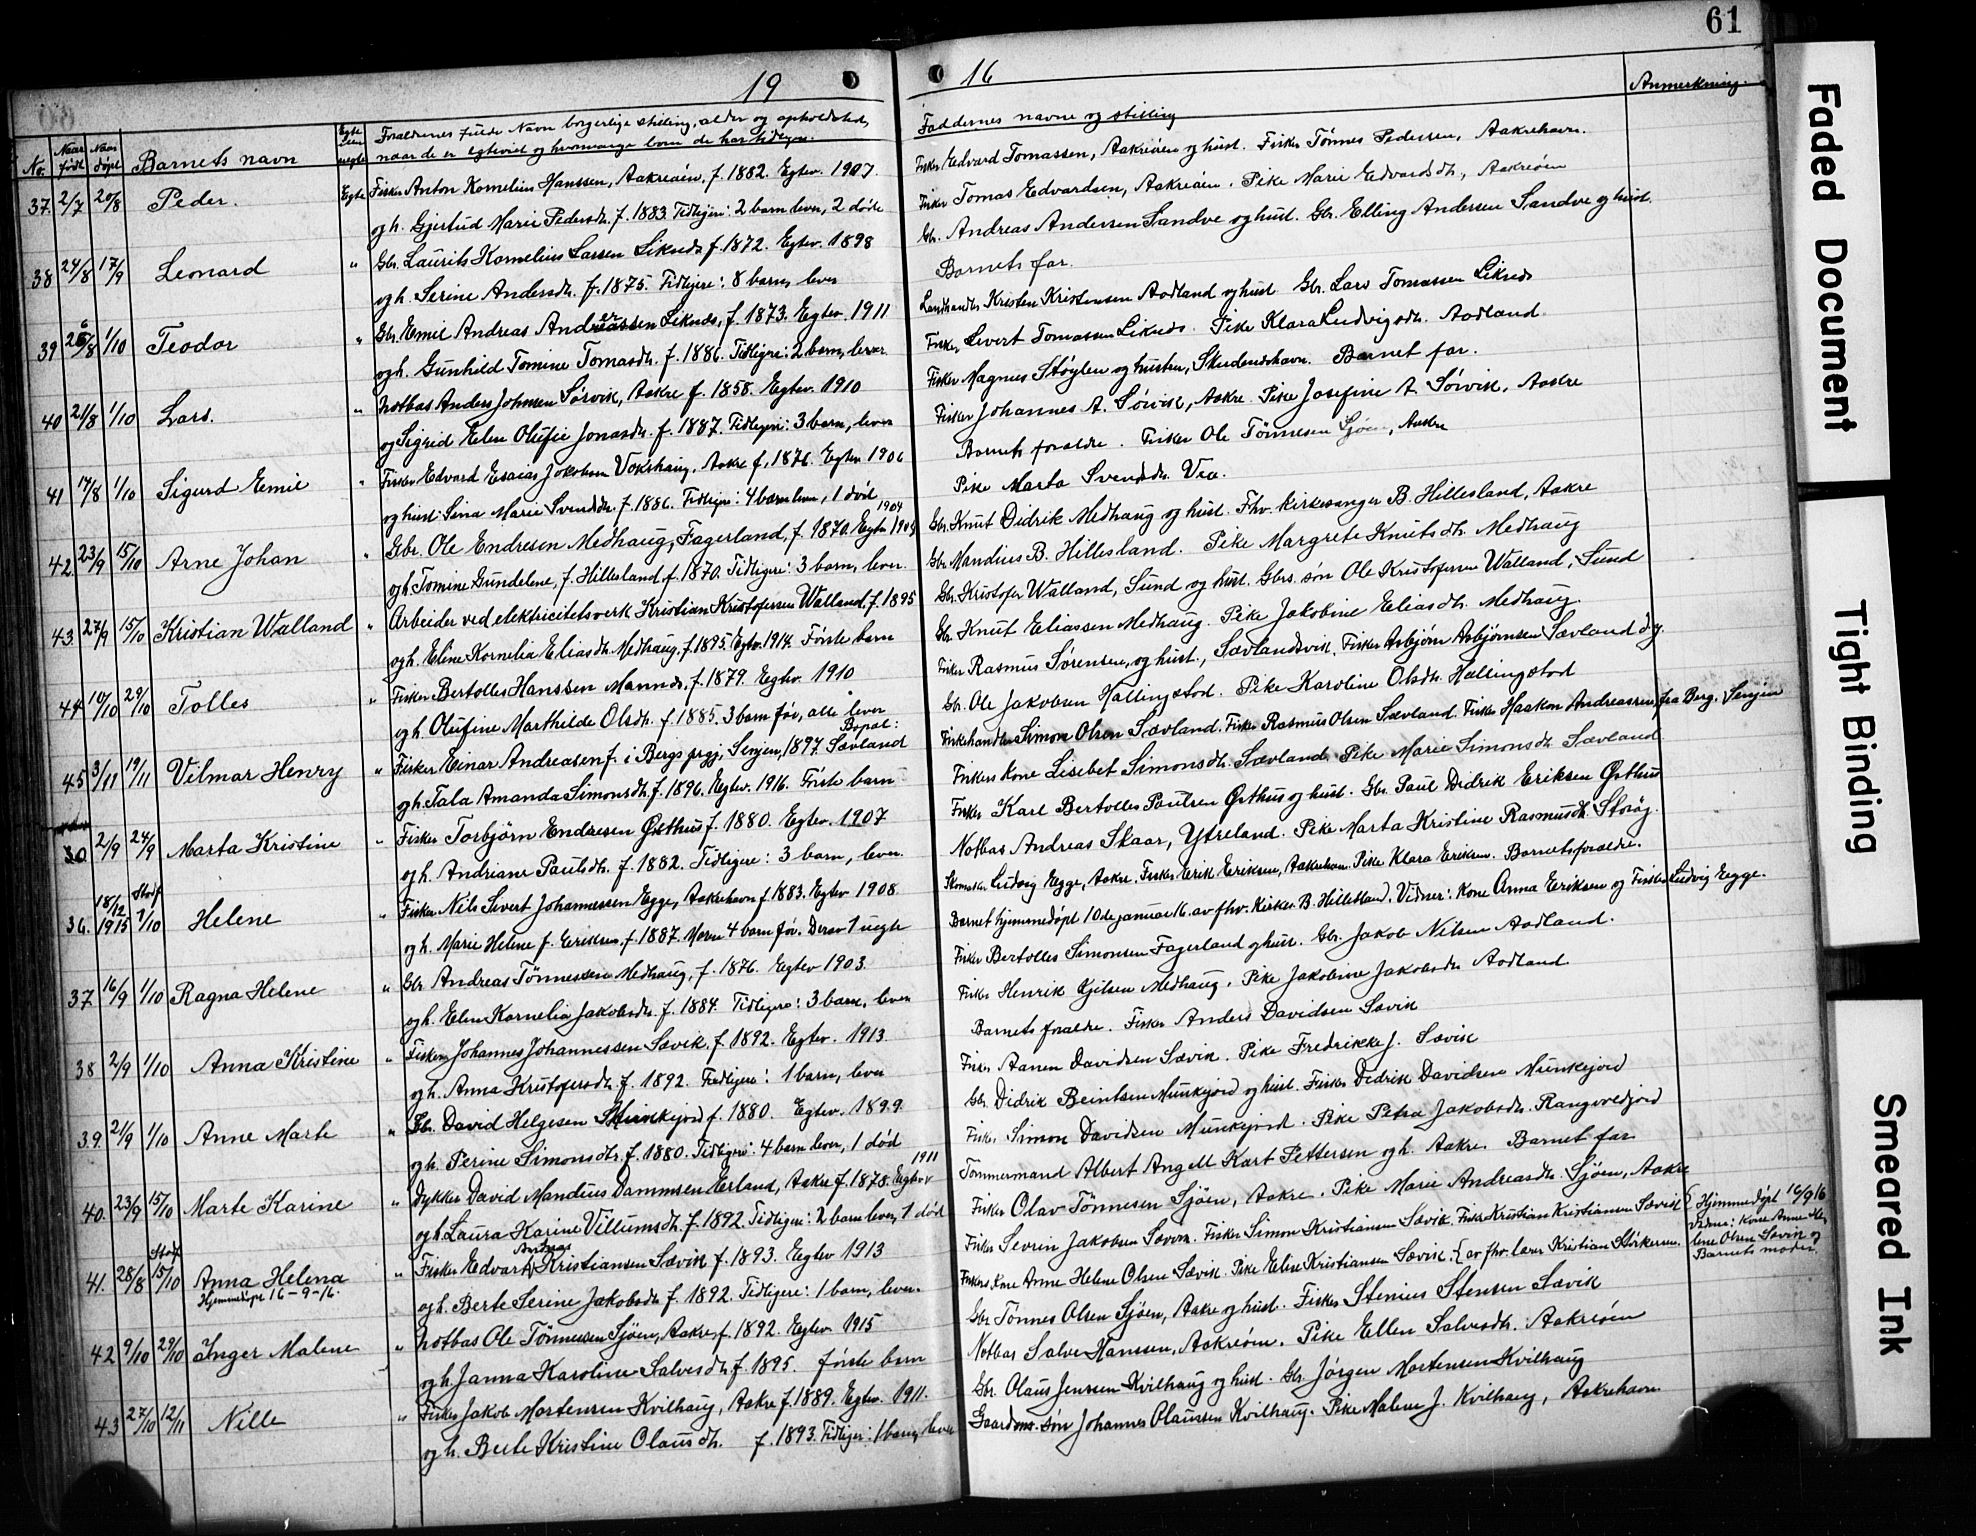 61
19 16
No. Naar født Naar døpt Barnets navn Egte eller uegte Forældrenes fulde Navn borgerlige stilling, alder og opholdssted,
naar de er egteviet og hvormange barn de har tidligere.
Faddernes navne og stilling Anmerkning.
37. 2/7 20/8 Peder. Egte Fisker Anton Kornelius Hanssen, Aakreøen, f. 1882. Egtev. 1907.
og h. Gjertud Marie Pedersdt. f. 1883. Tidligere: 2 barn lever, 2 døde
Fisker Edvard Tomassen, Aakreøen og hust. Fisker Tønnes Pedersen, Aakrehavn.
Fisker Tomas Edvardsen, Aakreøen. Pike Marie Edvardsdt., Aakreøen
38 24/8 17/9 Leonard " Gbr. Laurits Kornelius Larsen Liknes f. 1872. Egtev. 1898
og h. Serine Andersdt. f. 1875. Tidligere: 8 barn, lever
Gbr. Andreas Andersen Sandve og hust. Gbr. Elling Andersen Sandve og hust.
Barnets far.
39 26/8 1/10 Teodor " Gbr. Emil Andreas Andreassen Liknes, f. 1873. Egtev. 1911
og h. Gunhild Tomine Tomasdt. f. 1886. Tidligere: 2 barn, lever
Landhandler Kristen Kristensen Aodland og hust Gbr. Lars Tomassen Liknes
Fisker Sivert Tomassen Liknes. Pike Klara Ludvigsdt. Aodland.
40 21/8 1/10 Lars. " Notbas Anders Johnsen Sørvik, Aakre f. 1858. Egtev. 1910
og Sigrid Elen Olufie Jonasdt. f. 1887. Tidligere: 3 barn, lever
Fisker Magnus Støylen og hustru, Skudeneshavn. Barnet far.
Fisker Johannes A. Sørvik, Aakre. Pike Josefine A Sørvik, Aakre
41 14/8 1/10 Sigurd Emil " Fisker Edvard Esaias Jakobsen Vokshaug, Aakre f. 1876. Egtev 1906
og hust. Sina Marie Svendsdt. f. 1886. Tidligere: 4 barn lever, 1 død
Barnets forældre. Fisker Ole Tønnesen Sjøen, Aakre
Pike Marta Svendsdt. Vea.
42. 23/9 15/10 Arne Johan " Gbr. Ole Endresen Medhaug, Fagerland, f. 1870. Egtev 1904
og h. Tomine Gundelene, f. Hillesland f. 1870. Tidligere: 3 barn, lever.
Gbr. Knut Didrik Medhaug og hust. Fhv. kirkesanger B. Hillesland, Aakre
Gbr. Mandius B. Hillesland. Pike Margrete Knutsdt. Medhaug
43. 27/9 15/10 Kristian Walland " Arbeider ved elektricitetsverk Kristian Kristofersen Walland. f. 1895
og h. Eline Kornelia Eliasdt. Medhaug, f. 1895. Egtev. 1914. Første barn
Gbr. Kristofer Walland, Sund og hust. Gbrs. søn Ole Kristofersen Walland, Sund
Gbr. Knut Eliassen Medhaug. Pike Jakobine Eliasdt. Medhaug.
44 10/10 29/10 Tolles " Fisker Bertolles Hanssen Mannes. f. 1879. Egtev. 1910
og h. Olufine Marthilde Olsdt. f. 1885. 3 barn før, alle lever
Fisker Rasmus Sørensen, og hust., Sævlandsvik. Fisker Asbjørn Asbjørnsen Sævland dy.
Gbr. Ole Jakobsen Hallingstod. Pike Karoline Olsdt. Hallingstod
45 3/11 19/11 Vilmar Henry " Fisker Einar Andreasen f. i Bergs prgj, Senjen, 1897. Bopæl: Sævland
og h. Tala Amanda Simonsdt. f. 1896. Egtev. 1916. Første barn
Fiskehandler Simon Olsen Sævland. Fisker Rasmus Olsen Sævland. Fisker Haakon Andreassen, fra Berg, Senjen
Fiskers kone Lisebet Simonsdt. Sævland. Pike Marie Simonsdt. Sævland
30 2/9 24/9 Marta Kristine " Fisker Torbjørn Endresen Østhus f. 1880. Egtev. 1907
og h. Andriane Paulsdt. f. 1882. Tidligere: 3 barn, lever.
Fisker Karl Bertolles Paulsen Østhus og hust. Gbr. Paul Didrik Eriksen Østhus
Notbas Andreas Skaar, Ytreland. Pike Marta Kristine Rasmusdt. Storøy.
36. 18/12 1915 Stadf 1/10 Helene " Fisker Nils Sivert Johannessen Egge, Aakrehavn f. 1883. Egtev 1908.
og h. Marie Helene f. Eriksen, f. 1887. Moren 4 barn før. Derav 1 uegte
Skomaker Ludvig Egge, Aakre. Fisker Erik Eriksen, Aakrehavn. Pike Klara Eriksen. Barnets forældre.
Barnet hjemmedøpt 10de januar 16. av fhv. kirkes. B. Hillesland. Vidner: Kone Anna Eriksen og Fisker Ludvig Egge.
37. 16/9 1/10 Ragna Helene " Gbr Andreas Tønnessen Medhaug, f. 1876. Egtev 1903.
og h. Elen Kornelia Jakobsdt. f. 1884. Tidligere: 3 barn, lever
Fisker Bertolles Simonsen Fagerland og hust. Gbr. Jakob Nilsen Aodland.
Fisker Henrik Kjilsen Medhaug. Pike Jakobine Jakobsdt. Aodland
38 2/9 1/10 Anna Kristine " Fisker Johannes Johannessen Sævik. f. 1892. Egtev. 1913.
og h. Anna Kristofersdt. f. 1892. Tidligere: 1 barn, lever
Barnets forældre. Fisker Anders Davidsen Sævik
Fisker Aanen Davidsen Sævik. Pike Fredrikke J. Sævik
39. 21/9 1/10 Anne Marte " Gbr. David Helgesen Munkejord f. 1880. Egtev. 1899.
og h. Perine Simonsdt. f. 1880. Tidligere: 4 barn lever, 1 død
Gbr. Didrik Beintsen Munkejord og hust. Fisker Didrik Davidsen Munkejord
Fisker Simon Davidsen Munkejord. Pike Petra Jakobsdt. Rangvoldjord
40. 23/9 15/10 Marte Karine " Dykker David Mandius Dammsen Erland, Aakre f. 1878. Egtev 1911
og h. Laura Karine Villumsdt. f. 1892. Tidligere: 2 barn lever, 1 død
Tømmermand Albert Angell Kart Pettersen og h. Aakre. Barnet far
Fisker Olav Tønnesen Sjøen, Aakre. Pike Marie Andreasdt. Sjøen, Aakre
41. 28/8 Stadf 15/10 Anna Helena " Fisker Edvart Andreas Kristiansen Sævik f. 1893. Egtev 1913
Hjemmedøpt 16-9-16. og h. Berte Serine Jakobsdt. f. 1892. Tidligere: 1 barn, lever.
Fisker Sevrin Jakobsen Sævik. Fisker Simon Kristiansen Sævik. Fisker Kristian Kristiansen Sævik { Hjemmedøpt 16/9 16
Fiskers kone Anne Helene Olsen Sævik. Pike Eline Kristiansen Sævik. { av fhv. lærer Kristian Stirkersen. Vidner: Kone Anne Helene Olsen Sævik og Barnets moder.
42 9/10 29/10 Inger Malene " Notbas Ole Tønnessen Sjøen, Aakre, f. 1892. Egtev. 1915
og h. Janna Karoline Salvesdt. f. 1895. første barn
Gbr. Tønnes Olsen Sjøen, Aakre og hust. Fisker Stenius Stensen Sævik
Notbas Salve Hanssen, Aakreøen. Pike Ellen Salvesdt. Aakreøen
43 27/10 12/11 Nille " Fisker Jakob Mortensen Kvilhaug, Aakre f. 1889. Egtev. 1911.
og h. Berte Kristine Olausdt. f. 1893. Tidligere: 1 barn, lever
Gbr. Olaus Jenssen Kvilhaug og hust. Gbr. Jørgen Mortensen Kvilhaug
Gaardms. søn Johannes Olaussen Kvilhaug. Pike Malene J. Kvilhaug, Aakrehavn
Faded Document
Tight Binding
Smeared Ink